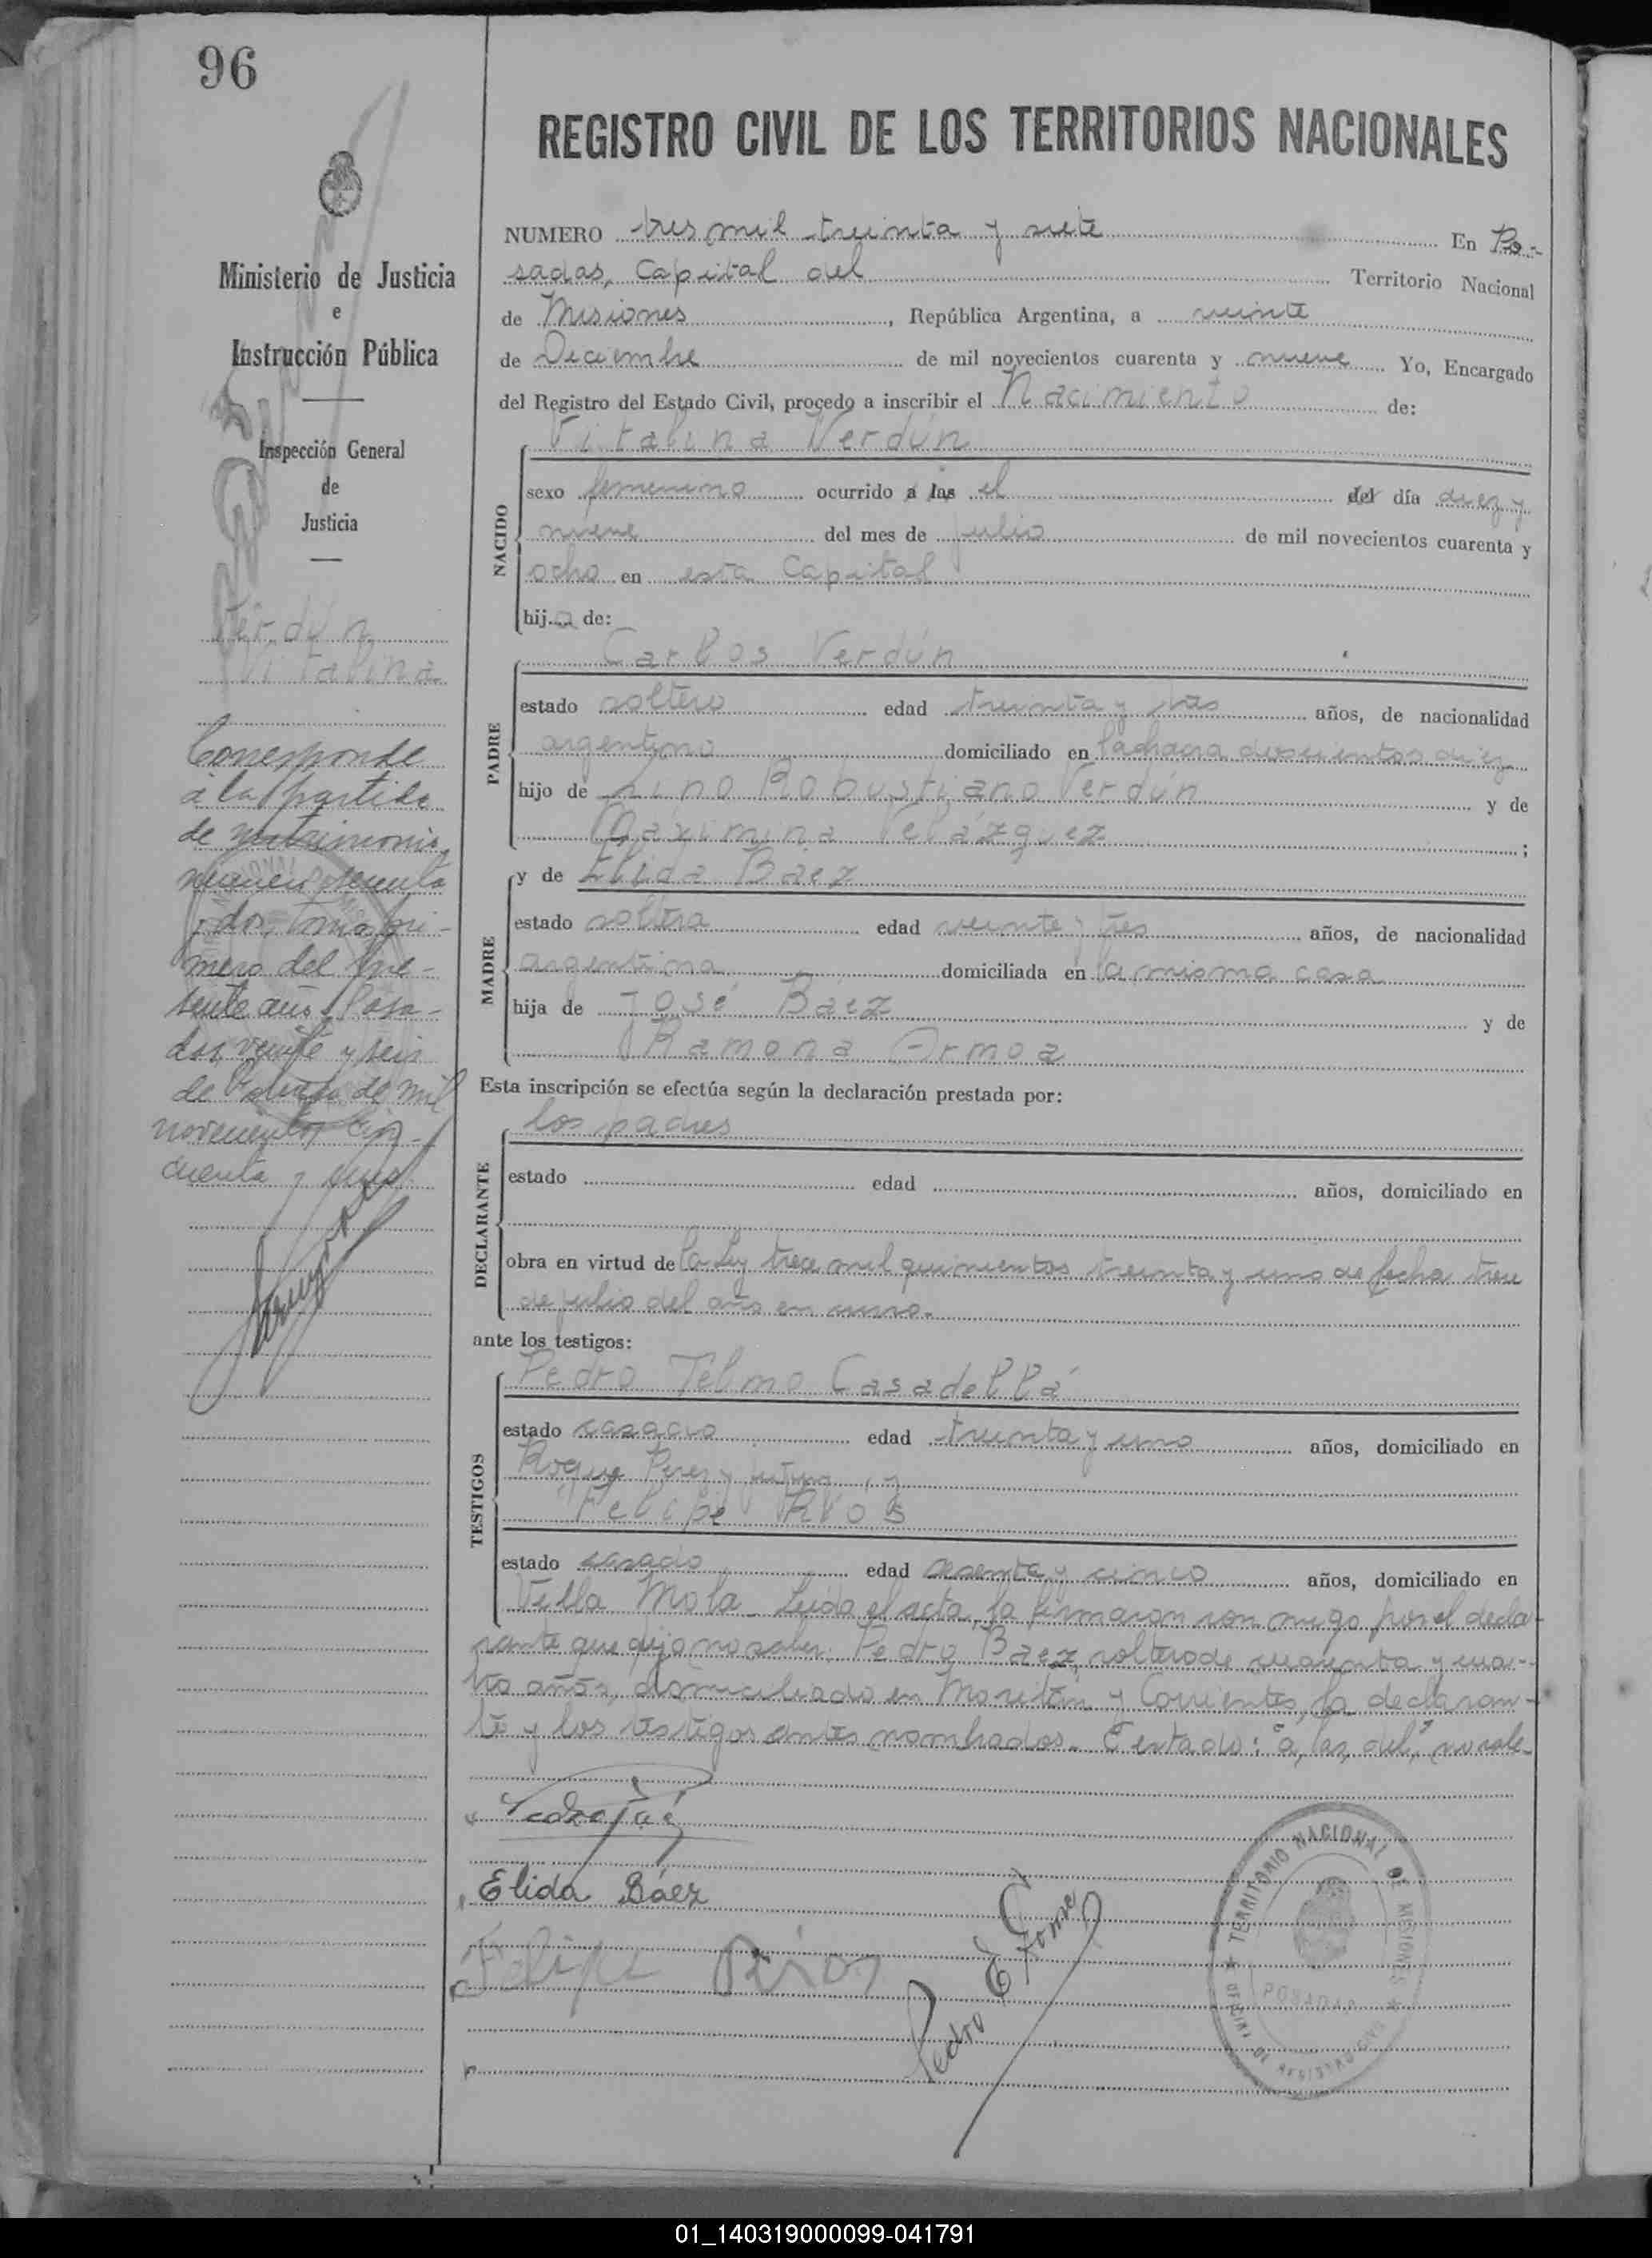 96
REGISTRO CIVIL DE LOS TERRITORIOS NACIONALES
Ministerio de Justicia
e
Instrucción Pública
Inspección General
de
Justicia
Verdún
Vitalina
Corresponde
a la partida
de matrimonio
dos, tomo pri-
mero del pre-
sente año. Posa-
das, veinte y seis
de de mil
novecientos cin-
cuenta y
NUMERO tres mil treinta y siete En Po-
sadas, Capital del Territorio Nacional
de Misiones, República Argentina, a veinte
de Diciembre de mil novecientos cuarenta y nueve Yo, Encargado
del Registro del Estado Civil, procedo a inscribir el Nacimiento de:
Vitalina Verdún
NACIDO
sexo femenino ocurrido a las el del día diez y
nueve del mes de julio de mil novecientos cuarenta y
ocho en esta Capital
hija de:
Carlos Verdún
PADRE
estado soltero edad treinta y tres años, de nacionalidad
argentino domiciliado en la chacra doscientos diez
hijo de Lino Robustiano Verdún y de
Máximina Velázquez;
y de Elida Báez
MADRE
estado soltera edad veinte y tres años, de nacionalidad
argentina domiciliada en la misma casa
hija de José Báez y de
Ramona Armoa
Esta inscripción se efectúa según la declaración prestada por:
los padres
DECLARANTE
estado edad años, domiciliado en
obra en virtud de la Ley trece mil quinientos treinta y uno de fecha trece
de julio del año en curso.
ante los testigos:
Pedro Telmo Casadellá
TESTIGOS
estado casado edad treinta y uno años, domiciliado en
Roque Perez y , y
Felipe Ríos
estado casado edad sesenta y cinco años, domiciliado en
Villa Mola. Leida el acta, la firmaron conmigo por el decla-
rante que dijo no saber: Pedro Báez, soltero de cuarenta y cua-
tro años, domiciliado en Moritán y Corrientes, la declaran-
te y los testigos antes nombrados. Testado: "a, las, del," no vale.
Pedro Báez
Elida Báez
Felipe Ríos
Pedro
TERRITORIO NACIONAL DE MISIONES
POSADAS
OFICINA DE REGISTRO CIVIL
01_140319000099-041791